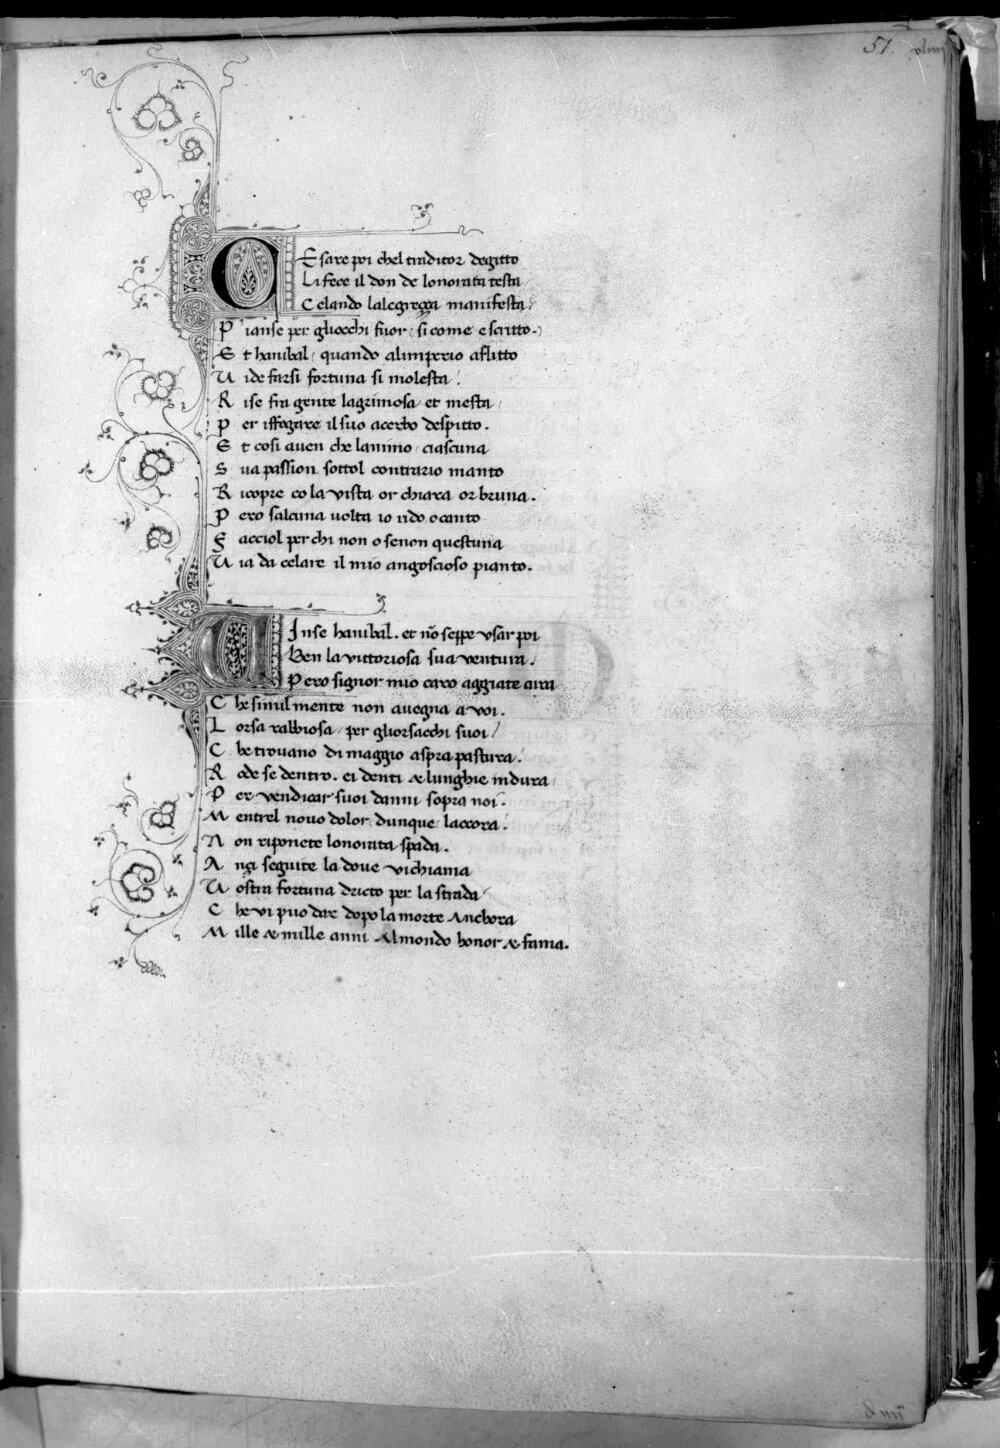 51.
CEsare poi chel traditor degitto
Li fece il don de lonorata testa
Celando lalegreçça manifesta/
Pianse per gliocchi fuor/ si come escritto.
Et hanibal/ quando alimperio aflitto
Uide farsi fortuna si molesta/
Rise fra gente lagrimosa et mesta/
Per isfogare il suo acerbo despitto.
Et cosi auen che lanimo/ ciascuna
Sua passion sottol contrario manto
Ricopre co la vista or chiara or bruna.
Pero salcuna uolta io rido o canto
Facciol per chi non o senon questuna
Uia da celare il mio angoscioso pianto.
UInse hanibal. et nō seppe vsar poi
Ben la vittoriosa sua ventura.
Pero signor mio caro aggiate cura
Che similmente non auegna a voi.
Lorsa rabbiosa/ per gliorsacchi suoi/
Che trouano di maggio aspra pastura/
Rode se dentro. ei denti & lunghie indura/
Per vendicar suoi danni sopra noi.
Mentrel nouo dolor/ dunque/ laccora/
Non riponete lonorata spada.
Ançi seguite la doue vi chiama
Uostra fortuna dricto per la strada/
Che vi puo dare dopo la morte Anchora
Mille & mille anni Almondo honor & fama.